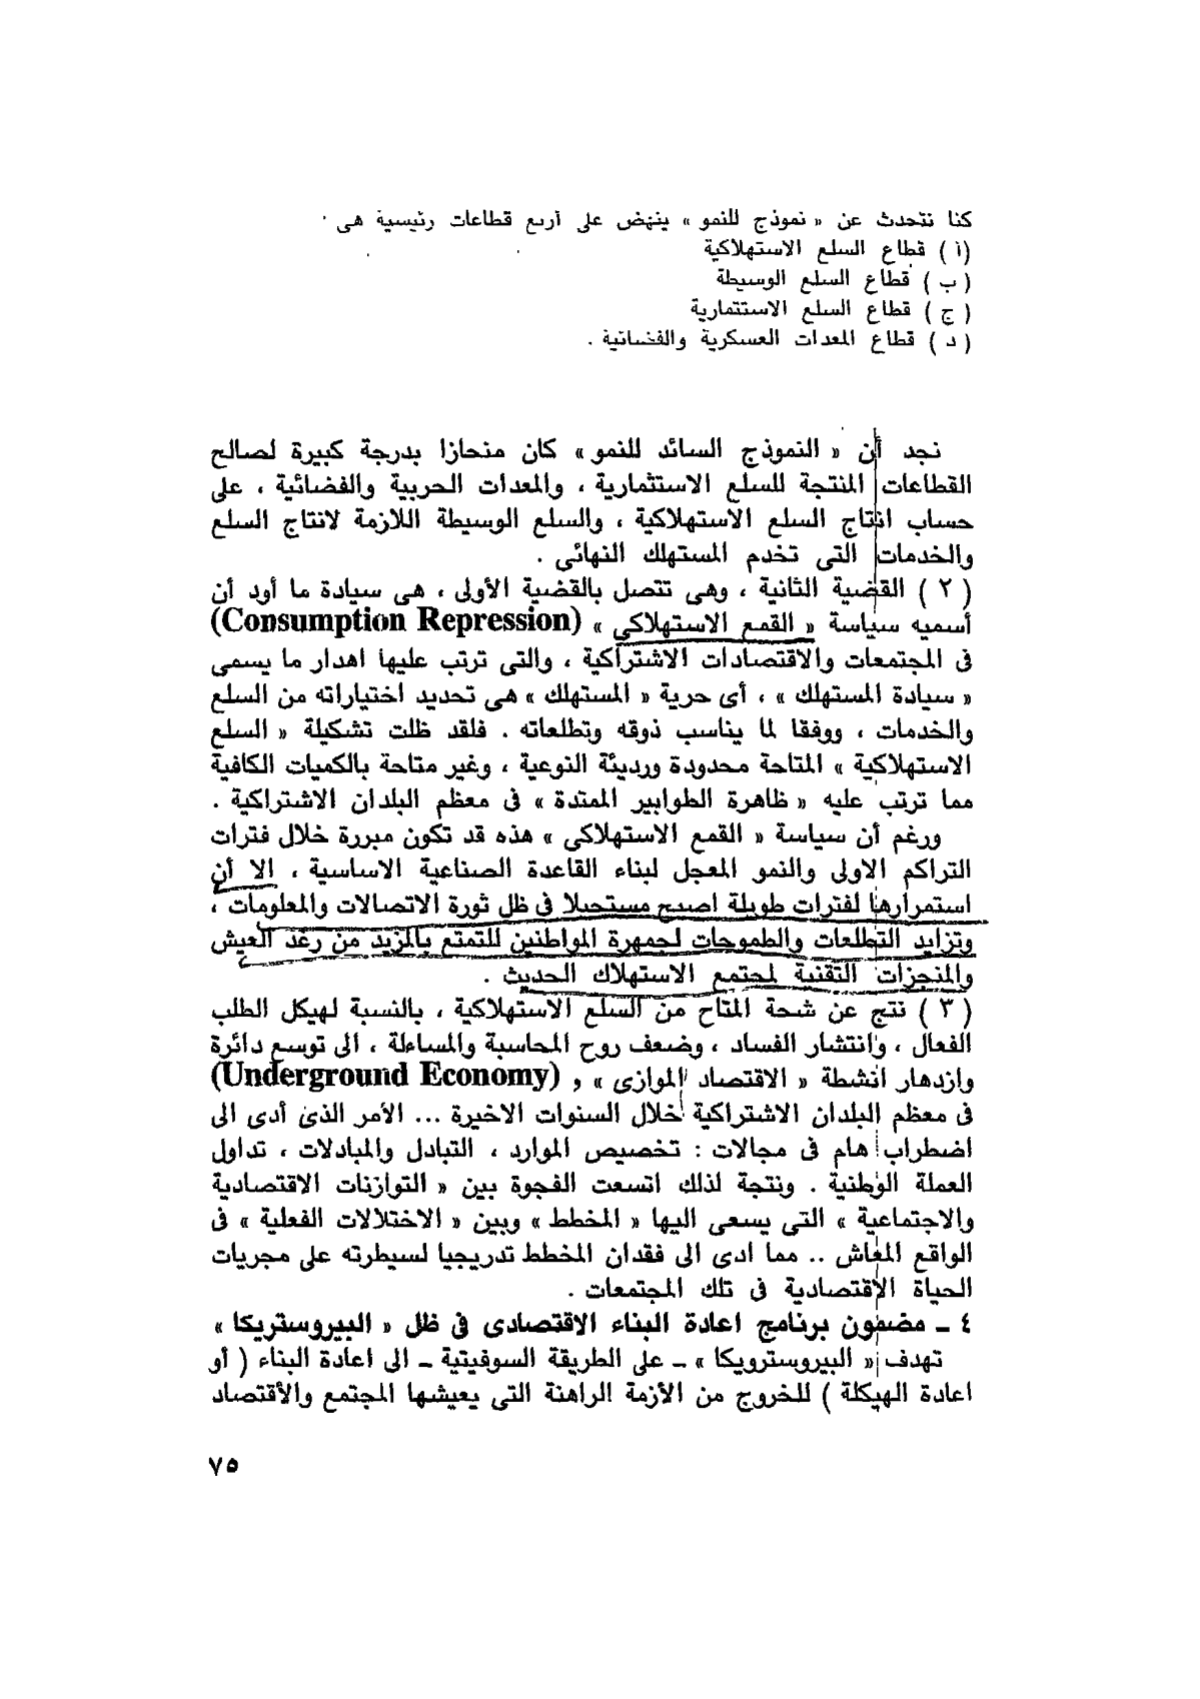 كنا نتحدث عن « نموذج للنمو » ينهض على أربع قطاعات رئيسية هى
( أ ) قطاع السلع الاستهلاكية
( ب ) قطاع السلع الوسيطة
( ج ) قطاع السلع الاستتمارية
( د ) قطاع المعدات العسكرية والفضائية .
نجد أن « النموذج السائد للنمو » كان منحازا بدرجة كبيرة لصالح
القطاعات المنتجة للسلع الاستثمارية ، والمعدات الحربية والفضائية ، على
حساب انتاج السلع الاستهلاكية ، والسلع الوسيطة اللازمة لانتاج السلع
والخدمات التى تخدم المستهلك النهائى .
( ٢ ) القضية الثانية ، وهى تتصل بالقضية الأولى ، هى سيادة ما أود أن
أسميه سياسة « القمع الاستهلاكي » (Consumption Repression)
فى المجتمعات والاقتصادات الاشتراكية ، والتى ترتب عليها اهدار ما يسمى
« سيادة المستهلك » ، أى حرية « المستهلك » هى تحديد اختياراته من السلع
والخدمات ، ووفقا لما يناسب ذوقه وتطلعاته . فلقد ظلت تشكيلة « السلع
الاستهلاكية » المتاحة محدودة ورديئة النوعية ، وغير متاحة بالكميات الكافية
مما ترتب عليه « ظاهرة الطوابير الممتدة » فى معظم البلدان الاشتراكية .
ورغم أن سياسة « القمع الاستهلاكى » هذه قد تكون مبررة خلال فترات
التراكم الاولى والنمو المعجل لبناء القاعدة الصناعية الاساسية ، الا أن
استمرارها لفترات طويلة اصبح مستحيلا فى ظل ثورة الاتصالات والمعلومات ،
وتزايد التطلعات والطموحات لجمهرة المواطنين للتمتع بالمزيد من رغد العيش
والمنجزات التقنية لمجتمع الاستهلاك الحديث .
( ٣ ) نتج عن شحة المتاح من السلع الاستهلاكية ، بالنسبة لهيكل الطلب
الفعال ، وانتشار الفساد ، وضعف روح المحاسبة والمساءلة ، الى توسع دائرة
وازدهار انشطة « الاقتصاد الموازى » و (Underground Economy)
فى معظم البلدان الاشتراكية خلال السنوات الاخيرة ... الأمر الذى أدى الى
اضطراب هام فى مجالات : تخصيص الموارد ، التبادل والمبادلات ، تداول
العملة الوطنية . ونتجة لذلك اتسعت الفجوة بين « التوازنات الاقتصادية
والاجتماعية » التى يسعى اليها « المخطط » وبين « الاختلالات الفعلية » فى
الواقع المعاش .. مما ادى الى فقدان المخطط تدريجيا لسيطرته على مجريات
الحياة الاقتصادية فى تلك المجتمعات .
٤ ـ مضمون برنامج اعادة البناء الاقتصادى فى ظل « البيروستريكا »
تهدف « البيروسترويكا » ـ على الطريقة السوفيتية ـ الى اعادة البناء ( أو
اعادة الهيكلة ) للخروج من الأزمة الراهنة التى يعيشها المجتمع والأقتصاد
٧٥